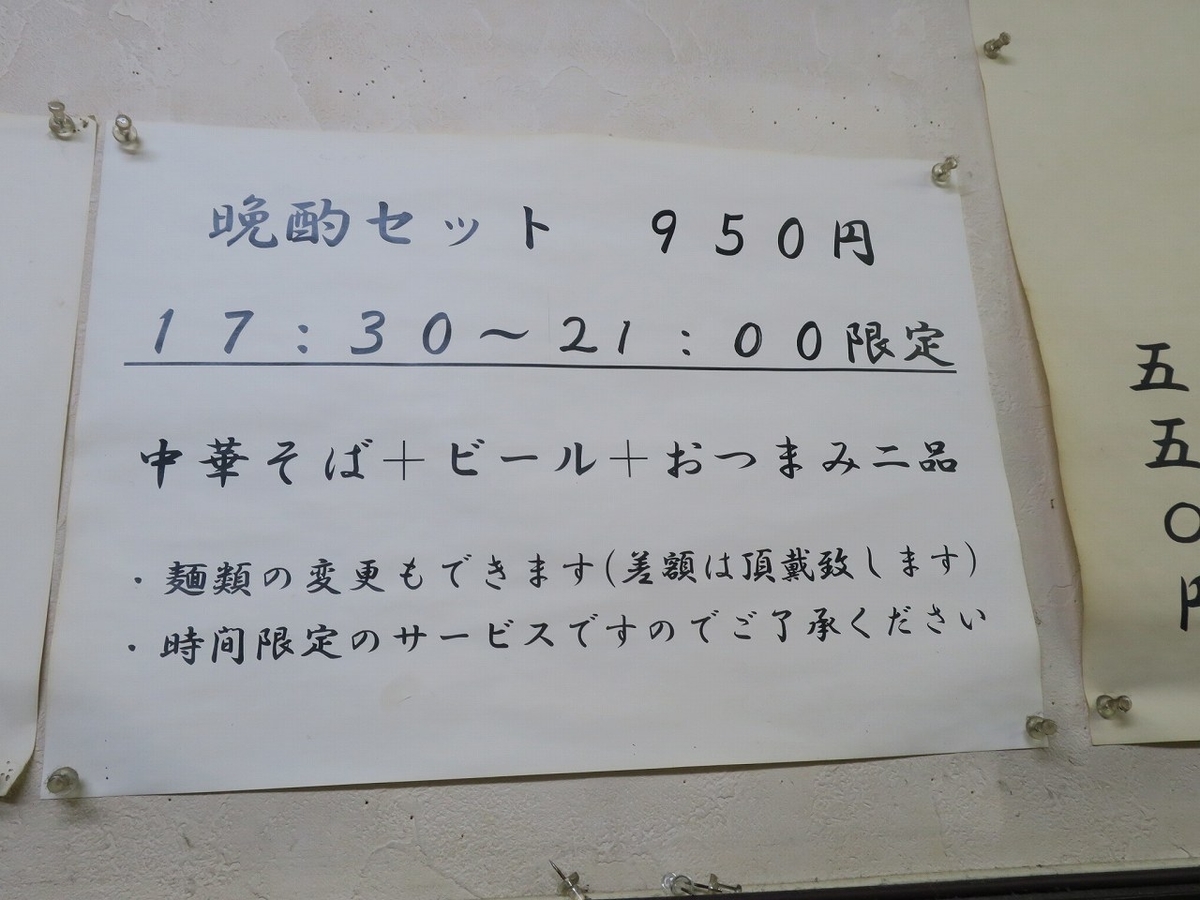 晩酌セット　９５０円
１７：３０～２１：００限定
中華そば＋ビール＋おつまみ二品
・麺類の変更もできます（差額は頂戴致します）
・時間限定のサービスですのでご了承ください
五五〇円